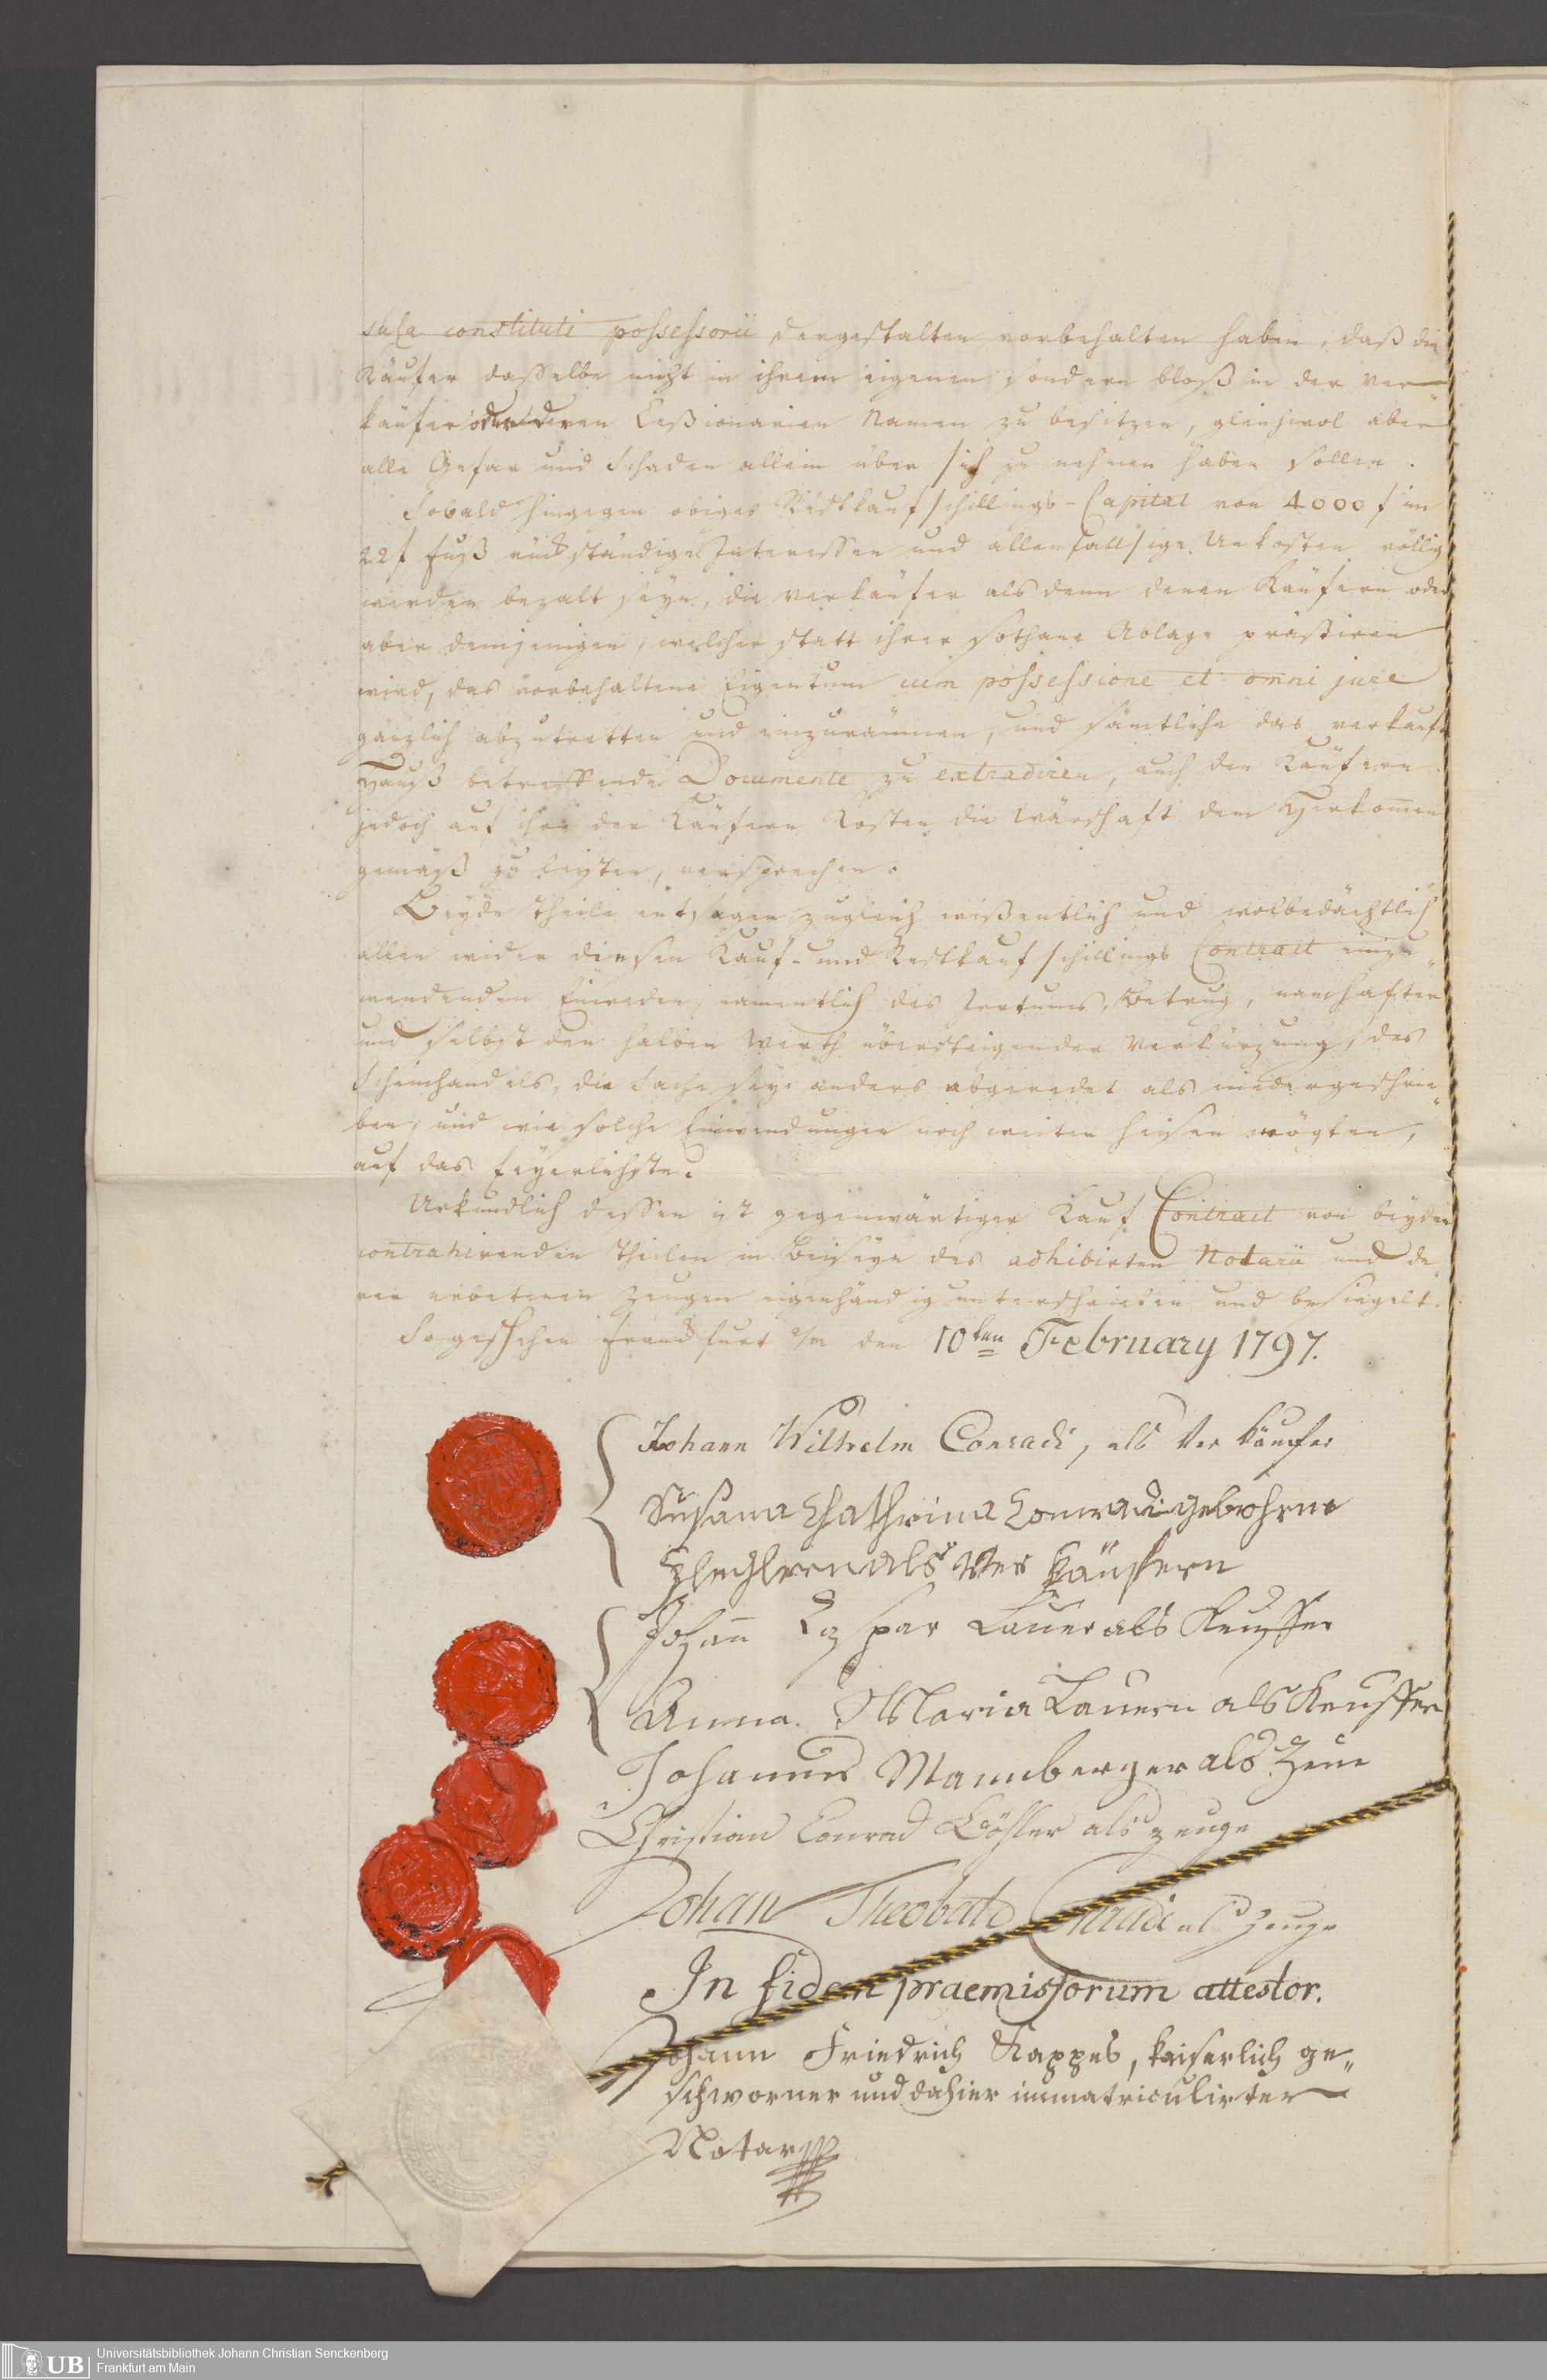 sula constituti possessorii dergestalten vorbehalten haben, daß die
Käufer dasselbe nicht in ihrem eigenen sondern bloß in der Ver„
käufer oder deren Ceßionarien Namen zu besitzen, gleichwol aber
alle Gefar und Schaden allein über sich zu nehmen haben sollen.
Sobald hingegen obiges Restkaufschillings-Capital von 4000 f im
22 f Fuß rückständige Interessen und allenfallsige Unkosten völlig
werden bezalt seyn, die Verkäufer alsdenn denen Käufern oder
aber demjenigen, welcher statt ihrer sothane Ablage prästiren
wird, das vorbehaltene Eigentum cum possessione et omni jure
gänzlich abzutretten und einzuräumen, und sämtliche das verkaufte
Hauß betreffende Documente zu extradiren, auch den Käufern
jedoch auf ihre der Käufern Kosten die Wärschaft dem Herkom̄en
gemäß zu leisten, versprechen.
Beyde Theile entsagen zugleich wißentlich und wolbedächtlich
allen wider diesen Kauf- und Restkaufschillings Contract einzu„
wendenden Einreden, namentlich des Irrtums, Betrug, namhafter
und selbst den halben Werth übersteigender Verkürzung, des
Scheinhandels, die Sache seye anders abgeredet als niedergeschrie„
ben, und wie solche Einwendungen noch weiter heisen mögten,
auf das feyerlichste.
Urkundlich dessen ist gegenwärtiger Kauf Contract von beyden
contrahirenden Theilen in Beiseyn des adhibirten Notarii und de
ren erbetenen Zeugen eigenhändig unterschrieben und besiegelt.
So geschehen Franckfurt a/m den 10ten February 1797.
Johann Wilhelm Conradi, als Ver käufer
Susana Chathrina Conradi gebohrne
als Ver käufern
Johann Caspar Lauer als Keuffer
Anna Maria Lauern als Keuffern
Johannes Mannberger als Zeuc
Christian Conrad Bößler als zeuge
Johan Theobald Conradi als Zeuge
In fidem praemissorum attestor.
Johann Friedrich Kappes, kaiserlich ge„
schworner und dahier immatriculirter
Notar
UB
Universitätsbibliothek Johann Christian Senckenberg
Frankfurt am Main